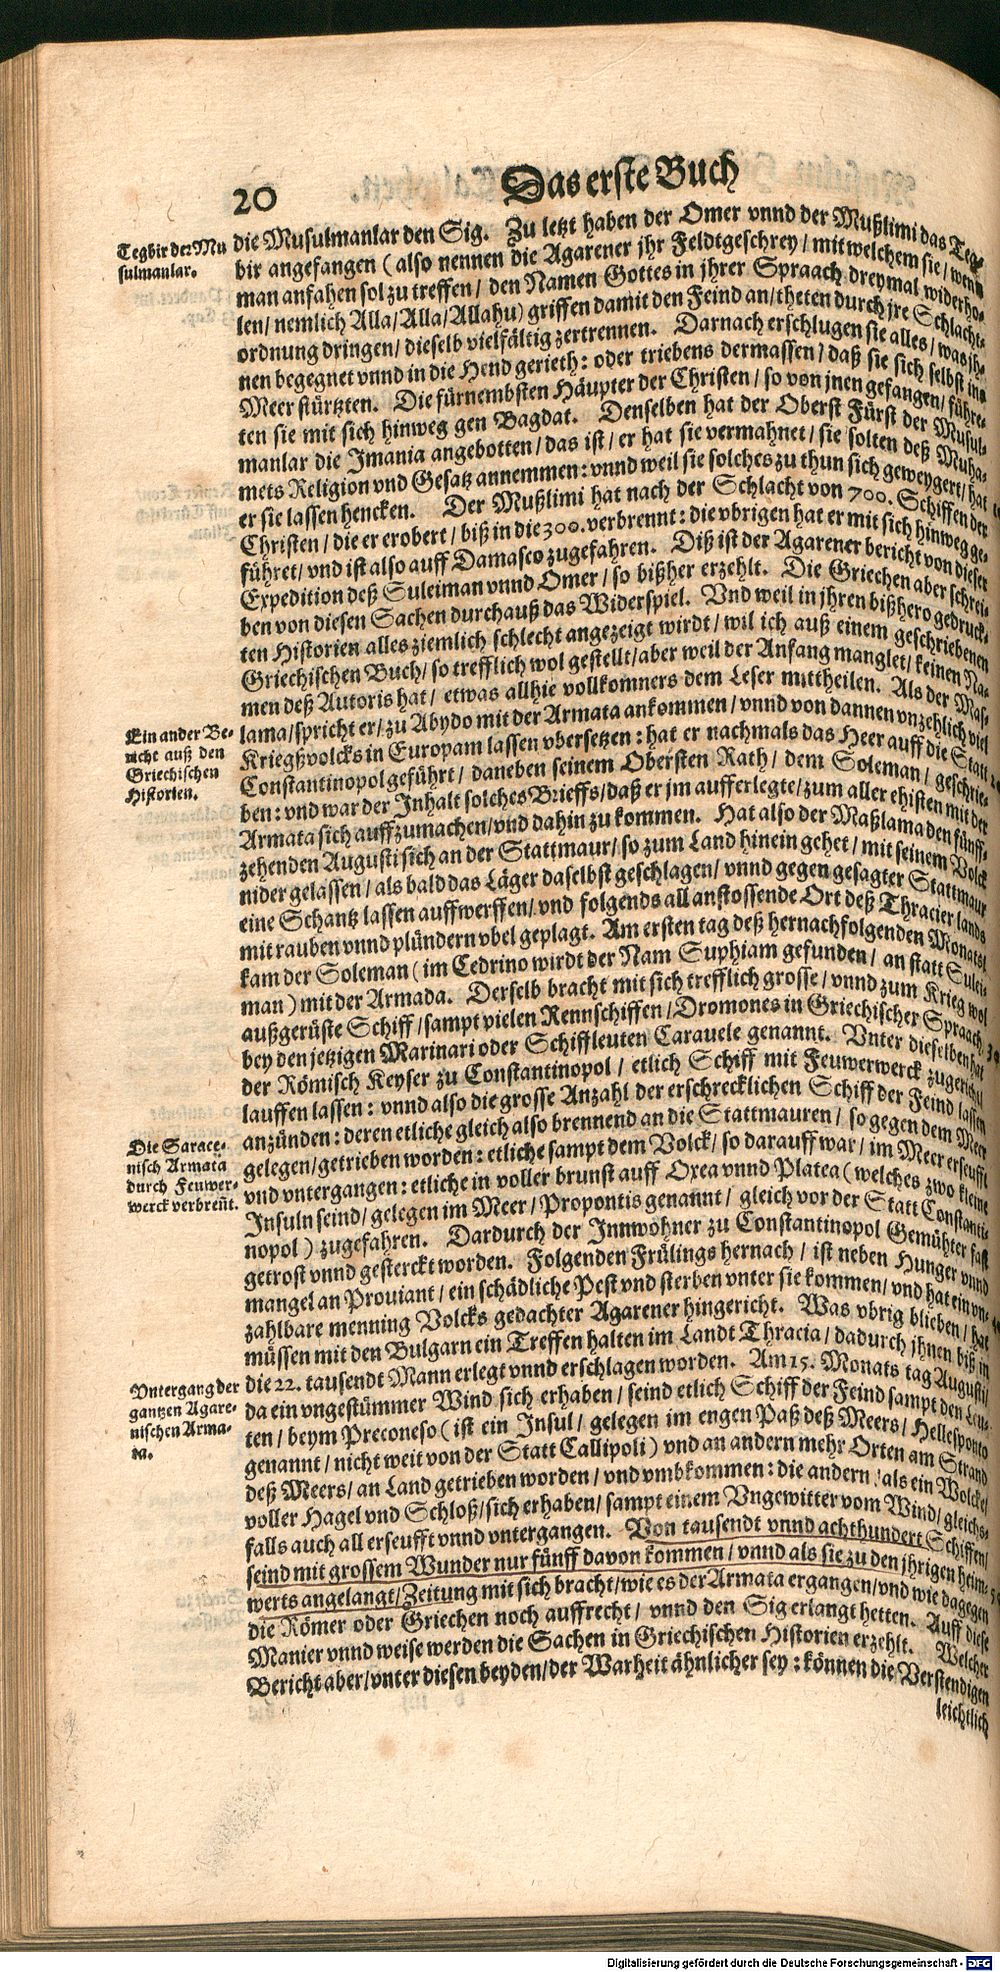 20
Das erste Buch
Tegbir der Mu
sulmanlar.
die Musulmanlar den Sig. Zu letzt haben der Omer vnnd der Mußlimi das Teg-
bir angefangen (also nennen die Agarener jhr Feldtgeschrey / mit welchem sie / wenn
man anfahen sol zu treffen / den Namen Gottes in jhrer Spraach dreymal widerho-
len / nemlich Alla / Alla / Allahu) griffen damit den Feind an / theten durch jre Schlacht-
ordnung dringen / dieselb vielfältig zertrennen. Darnach erschlugen sie alles / was jh-
nen begegnet vnnd in die Hend gerieth: oder triebens dermassen / daß sie sich selbst ins
Meer stürtzten. Die fürnembsten Häupter der Christen / so von jnen gefangen / führe-
ten sie mit sich hinweg gen Bagdat. Denselben hat der Oberst Fürst der Musul-
manlar die Imania angebotten / das ist / er hat sie vermahnet / sie solten deß Muha-
mets Religion vnd Gesatz annemmen: vnnd weil sie solches zu thun sich geweygert / hat
er sie lassen hencken. Der Mußlimi hat nach der Schlacht von 700. Schiffen der
Christen / die er erobert / biß in die 300. verbrennt: die vbrigen hat er mit sich hinweg ge-
führet / vnd ist also auff Damasco zugefahren. Diß ist der Agarener bericht von dieser
Expedition deß Suleiman vnnd Omer / so bißher erzehlt. Die Griechen aber schrei-
ben von diesen Sachen durchauß das Widerspiel. Vnd weil in jhren bißhero gedruck-
ten Historien alles ziemlich schlecht angezeigt wirdt / wil ich auß einem geschriebenen
Griechischen Buch / so trefflich wol gestellt / aber weil der Anfang manglet / keinen Na-
men deß Autoris hat / etwas allhie vollkomners dem Leser mittheilen. Als der Mas-
Ein ander Be-
richt auß den
Griechischen
Historien.
lama / spricht er / zu Abydo mit der Armata ankommen / vnnd von dannen vnzehlich viel
Kriegßvolcks in Europam lassen vbersetzen: hat er nachmals das Heer auff die Statt
Constantinopol geführt / daneben seinem Obersten Rath / dem Soleman / geschrie-
ben: vnd war der Inhalt solches Brieffs / daß er jm aufferlegte / zum aller ehisten mit der
Armata sich auffzumachen / vnd dahin zu kommen. Hat also der Maßlama den fünff-
zehenden Augusti sich an der Stattmaur / so zum Land hinein gehet / mit seinem Volck
nider gelassen / als bald das Läger daselbst geschlagen / vnnd gegen gesagter Stattmaur
eine Schantz lassen auffwerffen / vnd folgends all anstossende Ort deß Thracier lands
mit rauben vnnd plündern vbel geplagt. Am ersten tag deß hernachfolgenden Monats /
kam der Soleman (im Cedrino wirdt der Nam Suphiam gefunden / an statt Sulei-
man) mit der Armada. Derselb bracht mit sich trefflich grosse / vnnd zum Krieg wol
außgerüste Schiff / sampt vielen Rennschiffen / Dromones in Griechischer Spraach /
bey den jetzigen Marinari oder Schiffleuten Carauele genannt. Vnter dieselben hat
der Römisch Keyser zu Constantinopol / etlich Schiff mit Feuwerwerck zugericht
lauffen lassen: vnnd also die grosse Anzahl der erschrecklichen Schiff der Feind lassen
Die Sarace-
nisch Armata
durch Feuwer-
werck verbreñt.
anzünden: deren etliche gleich also brennend an die Stattmauren / so gegen dem Meer
gelegen / getrieben worden: etliche sampt dem Volck / so darauff war / im Meer erseufft
vnd vntergangen: etliche in voller brunst auff Oxea vnnd Platea (welches zwo kleine
Insuln seind / gelegen im Meer / Propontis genannt / gleich vor der Statt Constanti-
nopol) zugefahren. Dardurch der Innwohner zu Constantinopol Gemühter fast
getrost vnnd gesterckt worden. Folgenden Frülings hernach / ist neben Hunger vnnd
mangel an Prouiant / ein schädliche Pest vnd sterben vnter sie kommen / vnd hat ein vn-
zahlbare menning Volcks gedachter Agarener hingericht. Was vbrig blieben / hat
müssen mit den Bulgarn ein Treffen halten im Landt Thracia / dadurch jhnen biß in
Vntergang der
gantzen Agare-
nischen Arma-
ta.
die 22. tausendt Mann erlegt vnnd erschlagen worden. Am 15. Monats tag Augusti /
da ein vngestümmer Wind sich erhaben / seind etlich Schiff der Feind sampt den Leu-
ten / beym Preconeso (ist ein Insul / gelegen im engen Paß deß Meers / Hellesponto
genannt / nicht weit von der Statt Callipoli) vnd an andern mehr Orten am Strand
deß Meers / an Land getrieben worden / vnd vmbkommen: die andern / als ein Wolcke /
voller Hagel vnd Schloß / sich erhaben / sampt einem Vngewitter vom Wind / gleichs-
falls auch all erseufft vnnd vntergangen. Von tausendt vnnd achthundert Schiffen /
seind mit grossem Wunder nur fünff davon kommen / vnnd als sie zu den jhrigen heim-
werts angelangt / Zeitung mit sich bracht / wie es der Armata ergangen / vnd wie dagegen
die Römer oder Griechen noch auffrecht / vnnd den Sig erlangt hetten. Auff diese
Manier vnnd weise werden die Sachen in Griechischen Historien erzehlt. Welcher
Bericht aber / vnter diesen beyden / der Warheit ähnlicher sey: können die Verstendigen
leichtlich
Digitalisierung gefördert durch die Deutsche Forschungsgemeinschaft - DFG